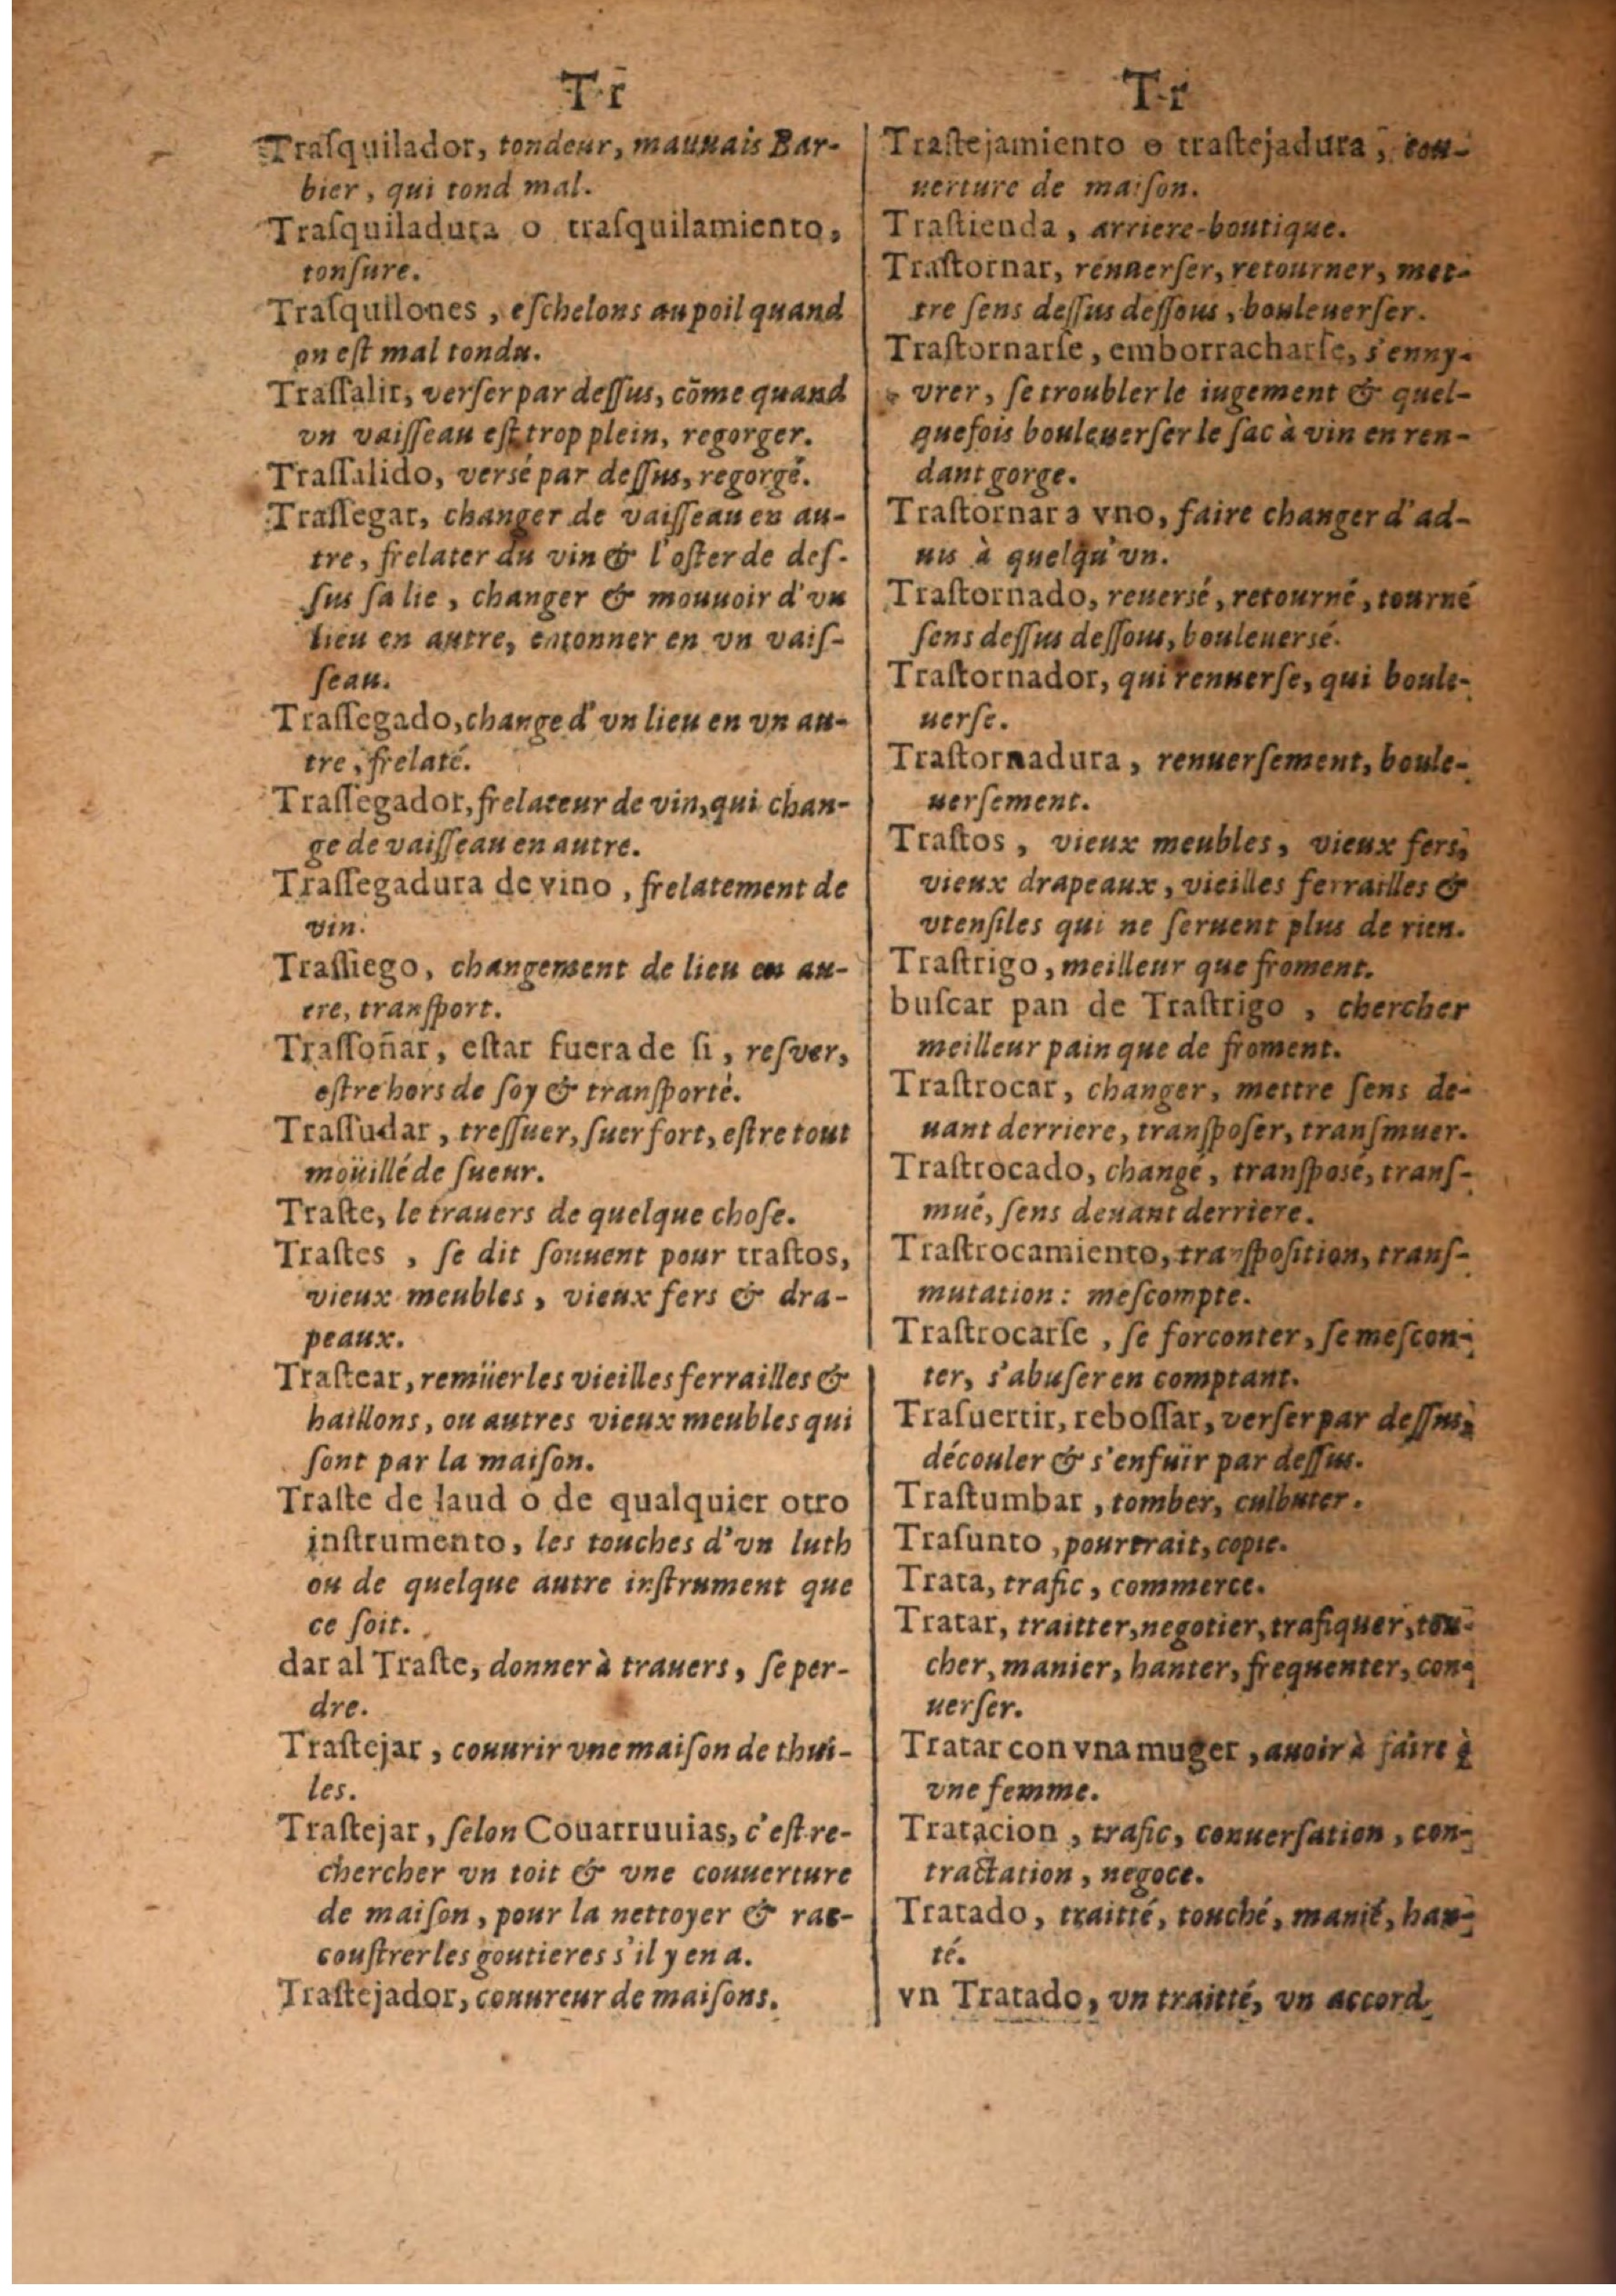 Tr
Traſquilador, tondeur, mauuais Bar-
bier, qui tond mal.
Traſquiladura o traſquilamiento,
tonſure.
Traſquilones, eſchelons au poil quand
on eſt mal tondu.
Traſſalir, verſer par deſſus, cõme quand
vn vaiſſeau eſt trop plein, regorger.
Traſſalido, versé par deſſus, regorgé.
Traſſegar, changer de vaiſſeau en au-
tre, frelater du vin & l'oſter de deſ-
ſus ſa lie, changer & mouuoir d'vn
lieu en autre, entonner en vn vaiſ-
ſeau.
Traſſegado, change d'vn lieu en vn au-
tre, frelaté.
Traſſegador, frelateur de vin, qui chan-
ge de vaiſſeau en autre.
Traſſegadura de vino, frelatement de
vin.
Traſſiego, changement de lieu en au-
tre, tranſport.
Traſſoñar, eſtar fuera de ſi, reſver,
eſtre hors de ſoy & tranſporté.
Traſſudar, treſſuer, ſuer fort, eſtre tout
moüillé de ſueur.
Traſte, le trauers de quelque choſe.
Traſtes, ſe dit ſouuent pour traſtos,
vieux meubles, vieux fers & dra-
peaux.
Traſtear, remüer les vieilles ferrailles &
haillons, ou autres vieux meubles qui
ſont par la maiſon.
Traſte de laud o de qualquier otro
inſtrumento, les touches d'vn luth
ou de quelque autre inſtrument que
ce ſoit.
dar al Traſte, donner à trauers, ſe per-
dre.
Traſtejar, couurir vne maiſon de thui-
les.
Traſtejar, ſelon Couarruuias, c'eſt re-
chercher vn toit & vne couuerture
de maiſon, pour la nettoyer & rac-
couſtrer les goutieres s'il y en a.
Traſtejador, couureur de maiſons.
Tr
Traſtejamiento o traſtejadura, cou-
uerture de maiſon.
Traſtienda, arriere-boutique.
Traſtornar, renuerſer, retourner, met-
tre ſens deſſus deſſous, bouleuerſer.
Traſtornarſe, emborracharſe, s'enny-
vrer, ſe troubler le iugement & quel-
quefois bouleuerſer le ſac à vin en ren-
dant gorge.
Traſtornar a vno, faire changer d'ad-
uis à quelqu'vn.
Traſtornado, reuersé, retourné, tourné
ſens deſſus deſſous, bouleuersé.
Traſtornador, qui renuerſe, qui boule-
uerſe.
Traſtornadura, renuerſement, boule-
uerſement.
Traſtos, vieux meubles, vieux fers,
vieux drapeaux, vieilles ferrailles &
vtenſiles qui ne ſeruent plus de rien.
Traſtrigo, meilleur que froment.
buſcar pan de Traſtrigo, chercher
meilleur pain que de froment.
Traſtrocar, changer, mettre ſens de-
uant derriere, tranſpoſer, tranſmuer.
Traſtrocado, changé, tranſposé, tranſ-
mué, ſens deuant derriere.
Traſtrocamiento, tranſpoſition, tranſ-
mutation: meſcompte.
Traſtrocarſe, ſe forconter, ſe meſcon-
ter, s'abuſer en comptant.
Traſuertir, reboſſar, verſer par deſſus,
découler & s'enfuïr par deſſus.
Traſtumbar, tomber, culbuter.
Traſunto, pourtrait, copie.
Trata, trafic, commerce.
Tratar, traitter, negotier, trafiquer, tou-
cher, manier, hanter, frequenter, con-
uerſer.
Tratar con vna muger, auoir à faire à
vne femme.
Tratacion, trafic, conuerſation, con-
tractation, negoce.
Tratado, traitté, touché, manié, han-
té.
vn Tratado, vn traitté, vn accord